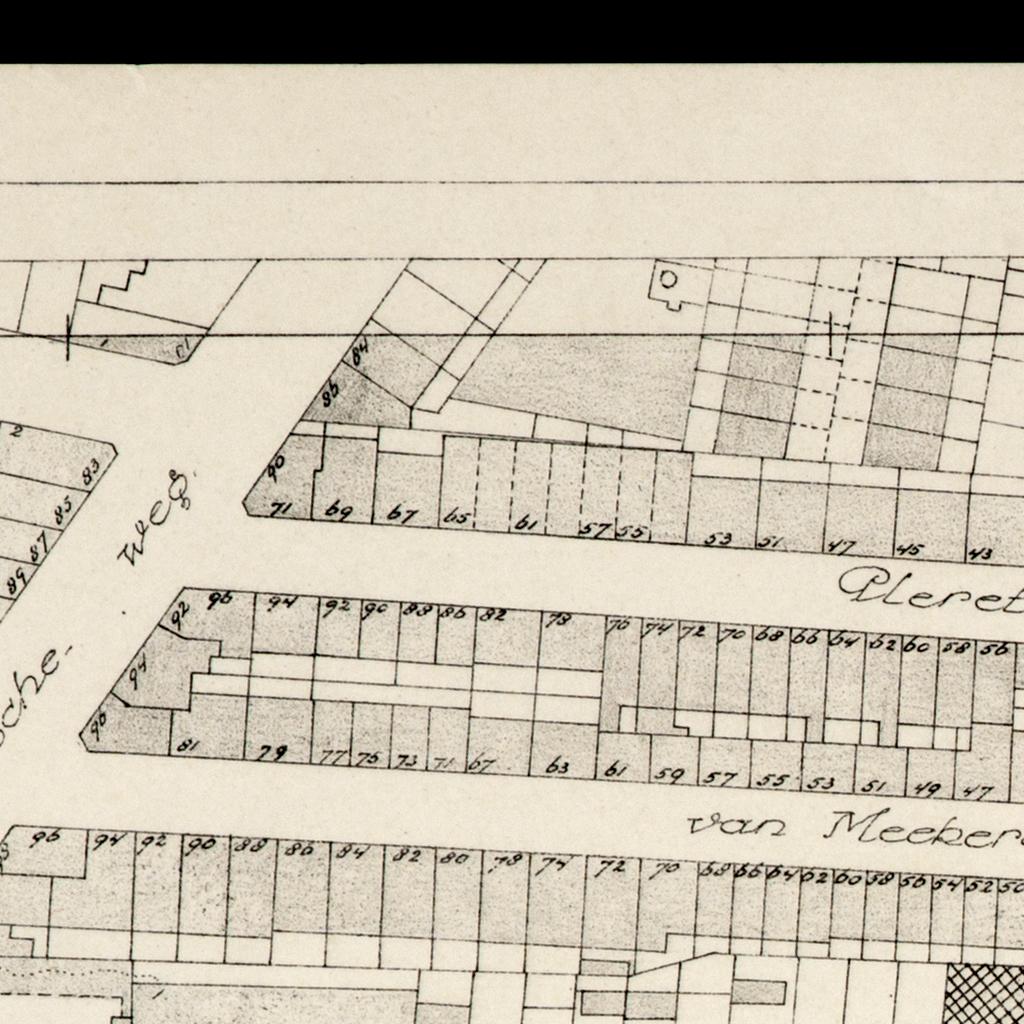 84
86
2
83
90
85
weg.
71 69 67 65 61 57 55 53 51 47 45 43
87
89
Pleret
92 96 94 92 90 88 86 82 78 76 74 72 70 68 66 64 62 60 58 56
94
sche-
98
81 79 77 75 73 71 67 63 61 59 57 55 53 51 49 47
van Meeker
96 94 92 90 88 86 84 82 80 78 74 72 70 68 66 64 62 60 58 56 54 52 50